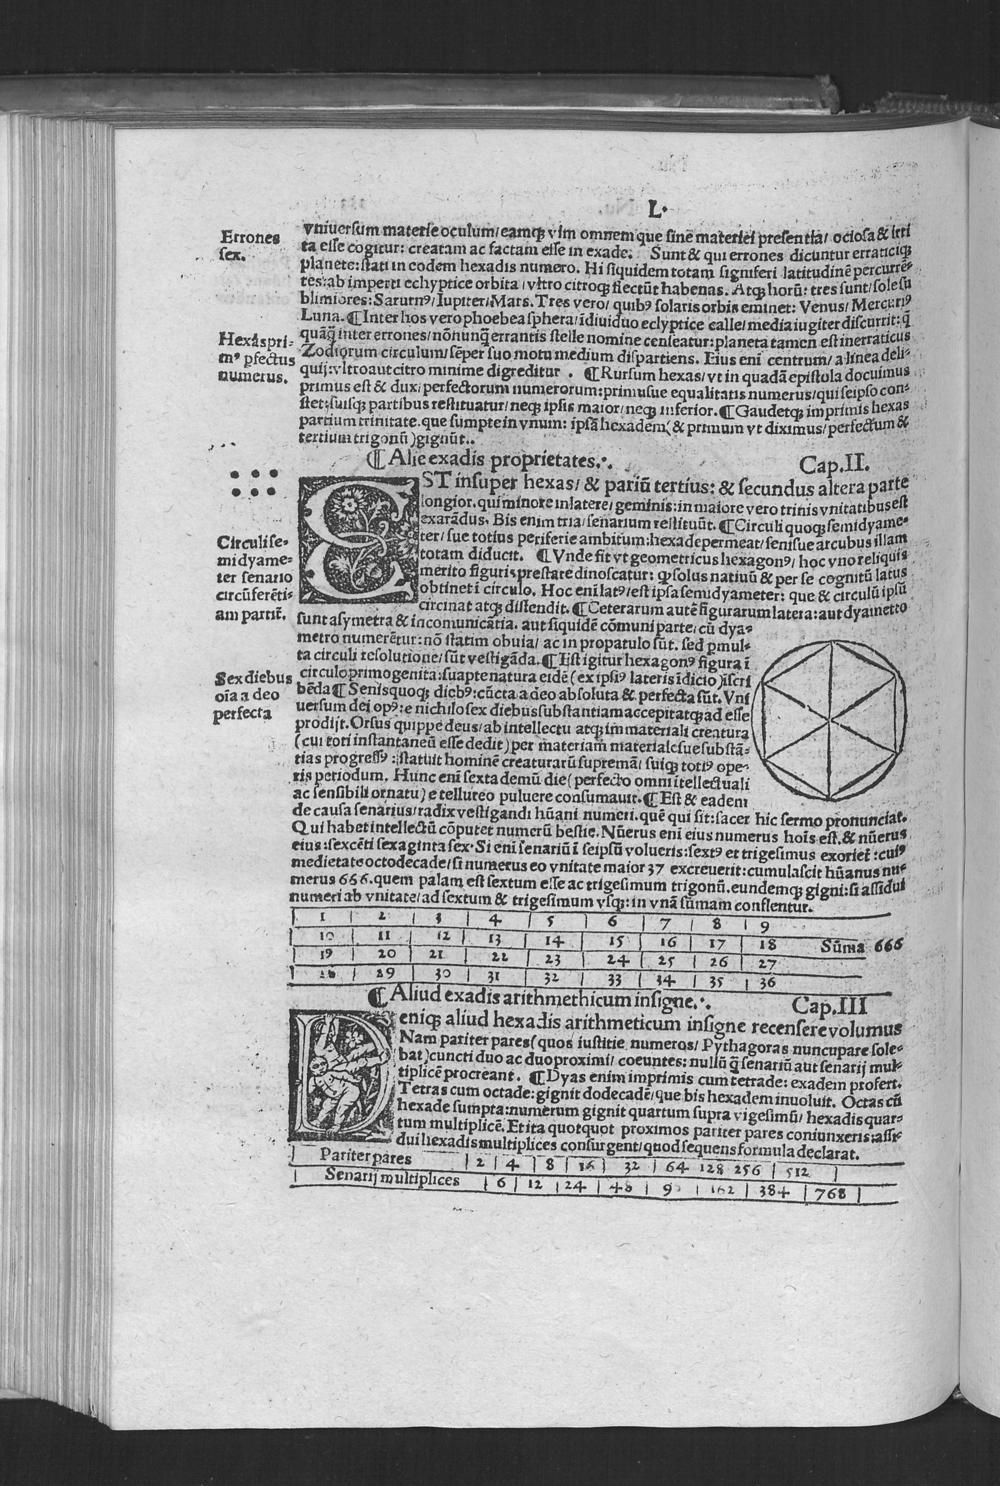 L.
Errones
sex.
vniuersum materie oculum/ eamq; vim omnem que sinē materiei presentia/ ociosa & irri
ta esse cogitur: creatam ac factam esse in exade. Sunt & qui errones dicuntur erraticiq;
planete: stati in eodem hexadis numero. Hi siquidem totam signiferi latitudinē percurrē-
tes: ab imperti echyptice orbita / vltro citroq; flectūt habenas. Atq; horū: tres sunt/ sole su
blimiores: Saturnꝰ/ Iupiter/ Mars. Tres vero/ quibꝰ solaris orbis eminet: Venus/ Mercuriꝰ
Luna. ¶ Inter hos vero phoebea sphera/ īdiuiduo eclyptice calle/ media iugiter discurrit: q̄
Hexas pri-
mꝰ pfectus
numerus.
quāq̄ inter errones/ nōnunq̄ errantis stelle nomine censeatur: planeta tamen est inerraticus
Zodiorum circulum/ sēper suo motu medium dispartiens. Eius eni centrum/ a linea deli-
quij: vltro aut citro minime digreditur. ¶ Rursum hexas/ vt in quadā epistola docuimus
primus est & dux/ perfectorum numerorum: primusue equalitatis numerus/ qui seipso con-
stet: suisq; partibus restituatur/ neq; ipsis maior/ neq; inferior. ¶ Gaudetq; imprimis hexas
partium trinitate. que sumpte in vnum: ipsā hexadem (& primum vt diximus/ perfectum &
tertium trigonū) gignūt..
¶ Alie exadis proprietates.·. Cap.II.
EST insuper hexas/ & pariū tertius: & secundus altera parte
longior. qui minore in latere/ geminis: in maiore vero trinis vnitatibus est
exarādus. Bis enim tria/ senarium restituūt. ¶ Circuli quoq; semidyame-
Circuli se-
midyame-
ter senario
circūferēti-
am partit.
ter/ sue totius periferie ambitum: hexade permeat/ senisue arcubus illam
totam diducit. ¶ Vnde fit vt geometricus hexagonꝰ/ hoc vno reliquis
merito figuris prestare dinoscatur: q solus natiuū & per se cognitū latus
obtineti circulo. Hoc eni latꝰ/ est ipsa semidyameter: que & circulū ipsū
circinat atq; distendit. ¶ Ceterarum autē figurarum latera: aut dyametto
sunt asymetra & incomunicātia. aut siquidē cōmuni parte/ cū dya-
metro numerētur: nō statim obuia/ ac in propatulo sūt. sed pmul-
ta circuli resolutione/ sūt vestigāda. ¶ Est igitur hexagonꝰ figura ī
Sex diebus
oīa a deo
perfecta
circulo primogenita: suapte natura eidē (ex ipsiꝰ lateris īdicio) īscri
bēda ¶ Senis quoq; diebꝰ: cūcta a deo absoluta & perfecta sūt. Vni
uersum dei opꝰ: e nichilo sex diebus substantiam accepit atq; ad esse
prodijt. Orsus quippe deus/ ab intellectu atq; immateriali creatura
(cui toti instantaneū esse dedit) per materiam materialesue substā-
tias progressꝰ: statuit hominē creaturarū supremā/ suiq; totiꝰ ope-
ris periodum. Hunc eni sexta demū die (perfecto omni ītellectuali
ac sensibili ornatu) e telluteo puluere consumauit. ¶ Est & eadem
de causa senarius/ radix vestigandi hūani numeri. quē qui sit: sacer hic sermo pronunciat.
Qui habet intellectū cōputet numerū bestie. Nūerus eni eius numerus hois est. & nūerus
eius: sexcēti sexaginta sex. Si eni senariū ī seipsū volueris: sextꝰ et trigesimus exoriet: cuiꝰ
medietate octodecade/ si numerus eo vnitate maior 37 excreuerit: cumulascit hūanus nu-
merus 666. quem palam est sextum esse ac trigesimum trigonū. eundemq; gigni: si assidui
numeri ab vnitate/ ad sextum & trigesimum vsq;: in vnā sūmam conflentur.
1 | 2 | 3 | 4 | 5 | 6 | 7 | 8 | 9
10 | 11 | 12 | 13 | 14 | 15 | 16 | 17 | 18 Sūma 666
19 | 20 | 21 | 22 | 23 | 24 | 25 | 26 | 27
28 | 29 | 30 | 31 | 32 | 33 | 34 | 35 | 36
¶ Aliud exadis arithmethicum insigne.·. Cap.III
Deniq; aliud hexadis arithmeticum insigne recensere volumus
Nam pariter pares (quos iustitie numeros/ Pythagoras nuncupare sole-
bat) cuncti duo ac duo proximi/ coeuntes: nullū q̄ senariū aut senarij mul-
tiplicē procreant. ¶ Dyas enim imprimis cum tetrade: exadem profert.
Tetras cum octade: gignit dodecadē/ que bis hexadem inuoluit. Octas cū
hexade sumpta: numerum gignit quartum supra vigesimū/ hexadis quar-
tum multiplicē. Et ita quotquot proximos pariter pares coniunxeris: assi-
dui hexadis multiplices consurgent/ quod sequens formula declarat.
Pariter pares | 2 | 4 | 8 | 16 | 32 | 64 128 256 | 512
Senarij multiplices | 6 | 12 | 24 | 48 | 9 | 162 | 384 | 768 |